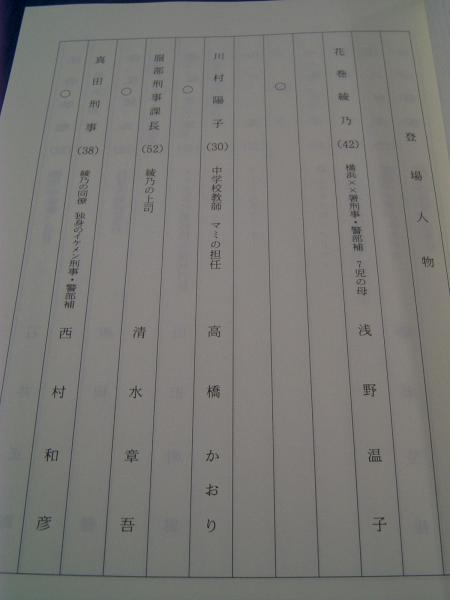 登場人物
花巻綾乃(42) 横浜××署刑事・警部補 7児の母 浅野温子
○
川村陽子(30) 中学校教師 マミの担任 高橋かおり
○
服部刑事課長(52) 綾乃の上司 清水章吾
○
真田刑事(38) 綾乃の同僚 独身のイケメン刑事・警部補 西村和彦
○